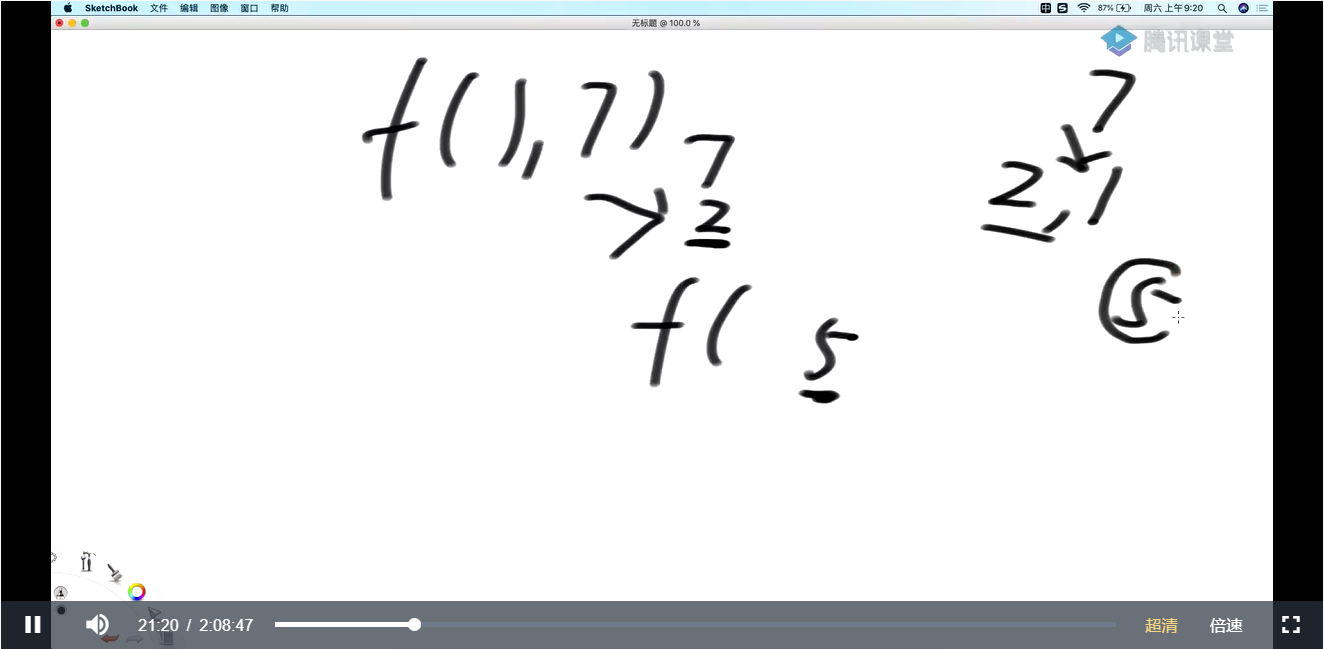 SketchBook 文件 编辑 图像 窗口 帮助
87% 周六 上午9:20
无标题 @ 100.0 %
腾讯课堂
f( ), 7)
7
7
2
2, 1
f( 5
5
21:20 / 2:08:47 超清 倍速